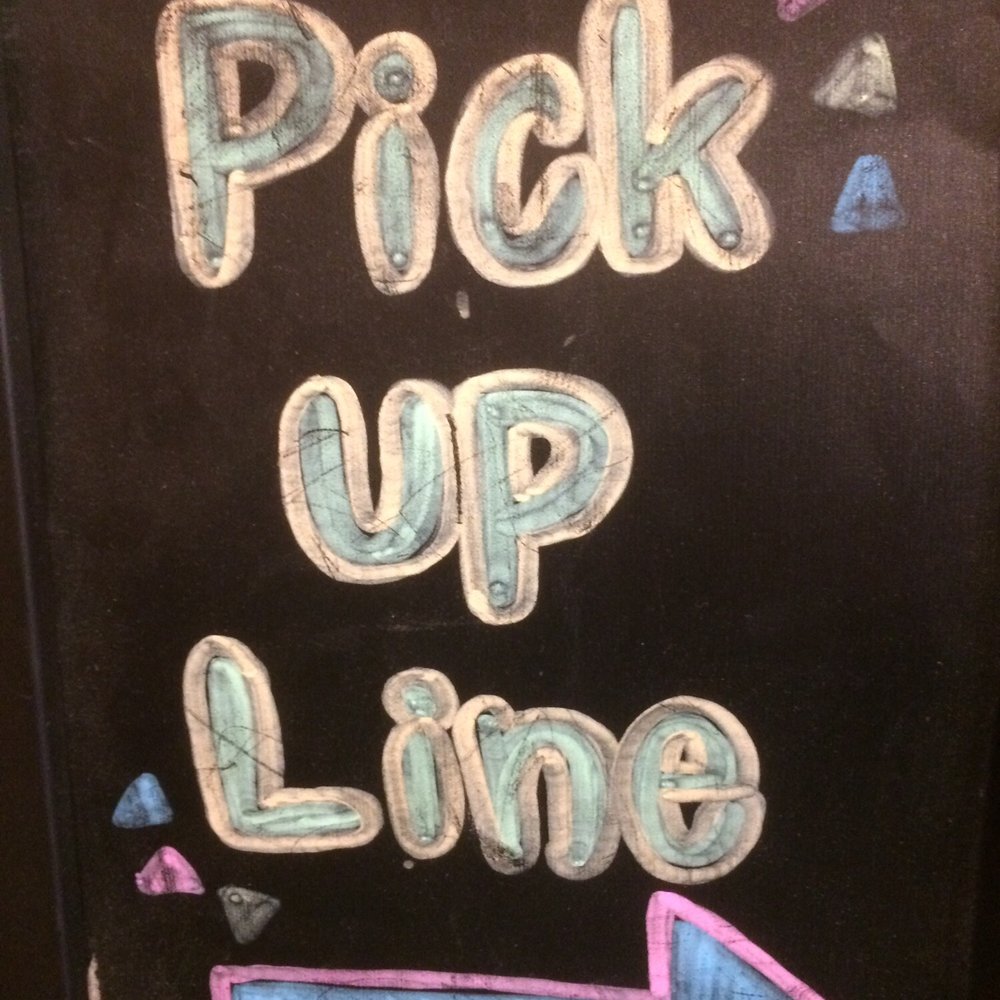 Pick
UP
Line